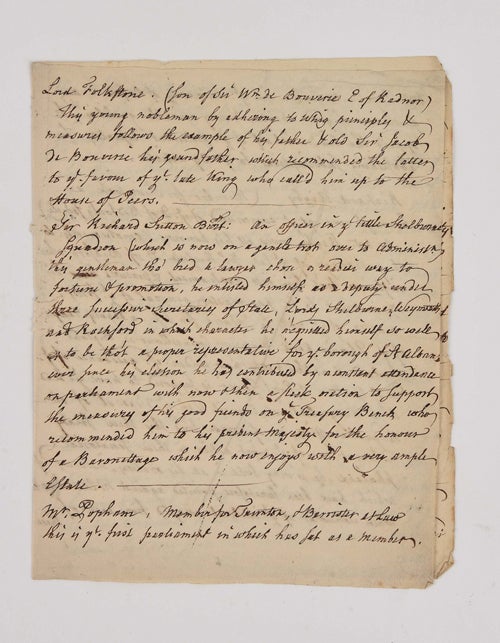 Lord Folkstone. (Son of Sir Wm. de Bouverie E. of Radnor)
This young nobleman by adhering to whig principles &
measures follows the example of his father & old Sir Jacob
de Bouverie his grandfather which recommended the latter
to ye. favour of ye. late King who call'd him up to the
House of Peers.
Sir Richard Sutton Bart: An officer in ye little Shelburnatic
squadron (which is now on a gentle trot over to Administrn
this gentleman tho' bred a lawyer chose a readier way to
fortune & promotion, he enlisted himself as a deputy under
three successive Secretarys of State, Lords Shelburne, Weymouth
and Rochford in which character he acquitted himself so well
as to be thot a proper representative for ye. borough of St Albans
ever since his election he has contributed by a constant attendance
on parliament with now & then a sleek oration to support
the measures of his good friends on ye Treasury Bench who
recommended him to his present Majesty for the honour
of a Baronettage which he now enjoys with a very ample
Estate.
Mr. Popham, Member for Taunton, & Barrister at Law
this is ye. first parliament in which has sat as a member.